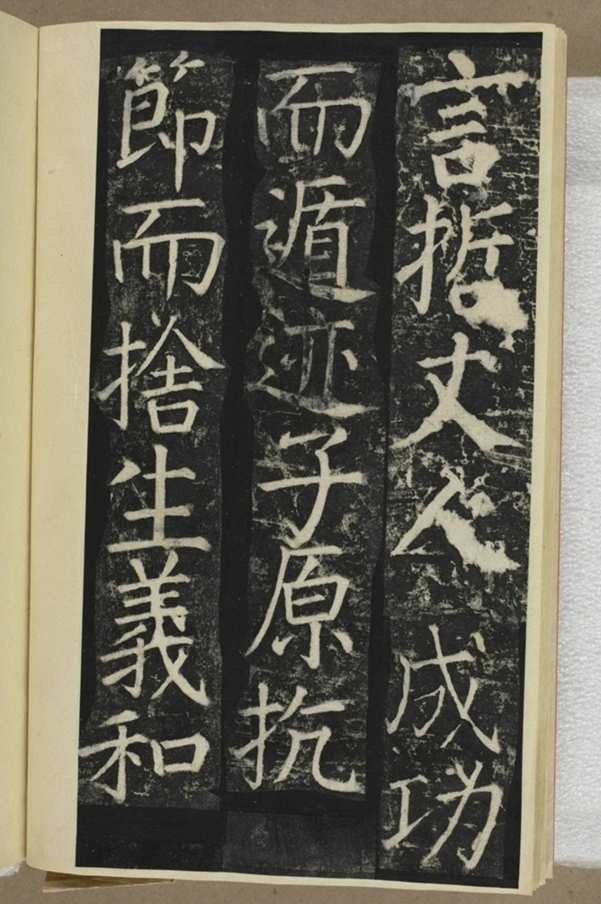 言哲丈人成功
而遁迹子原抗
節而捨生義和